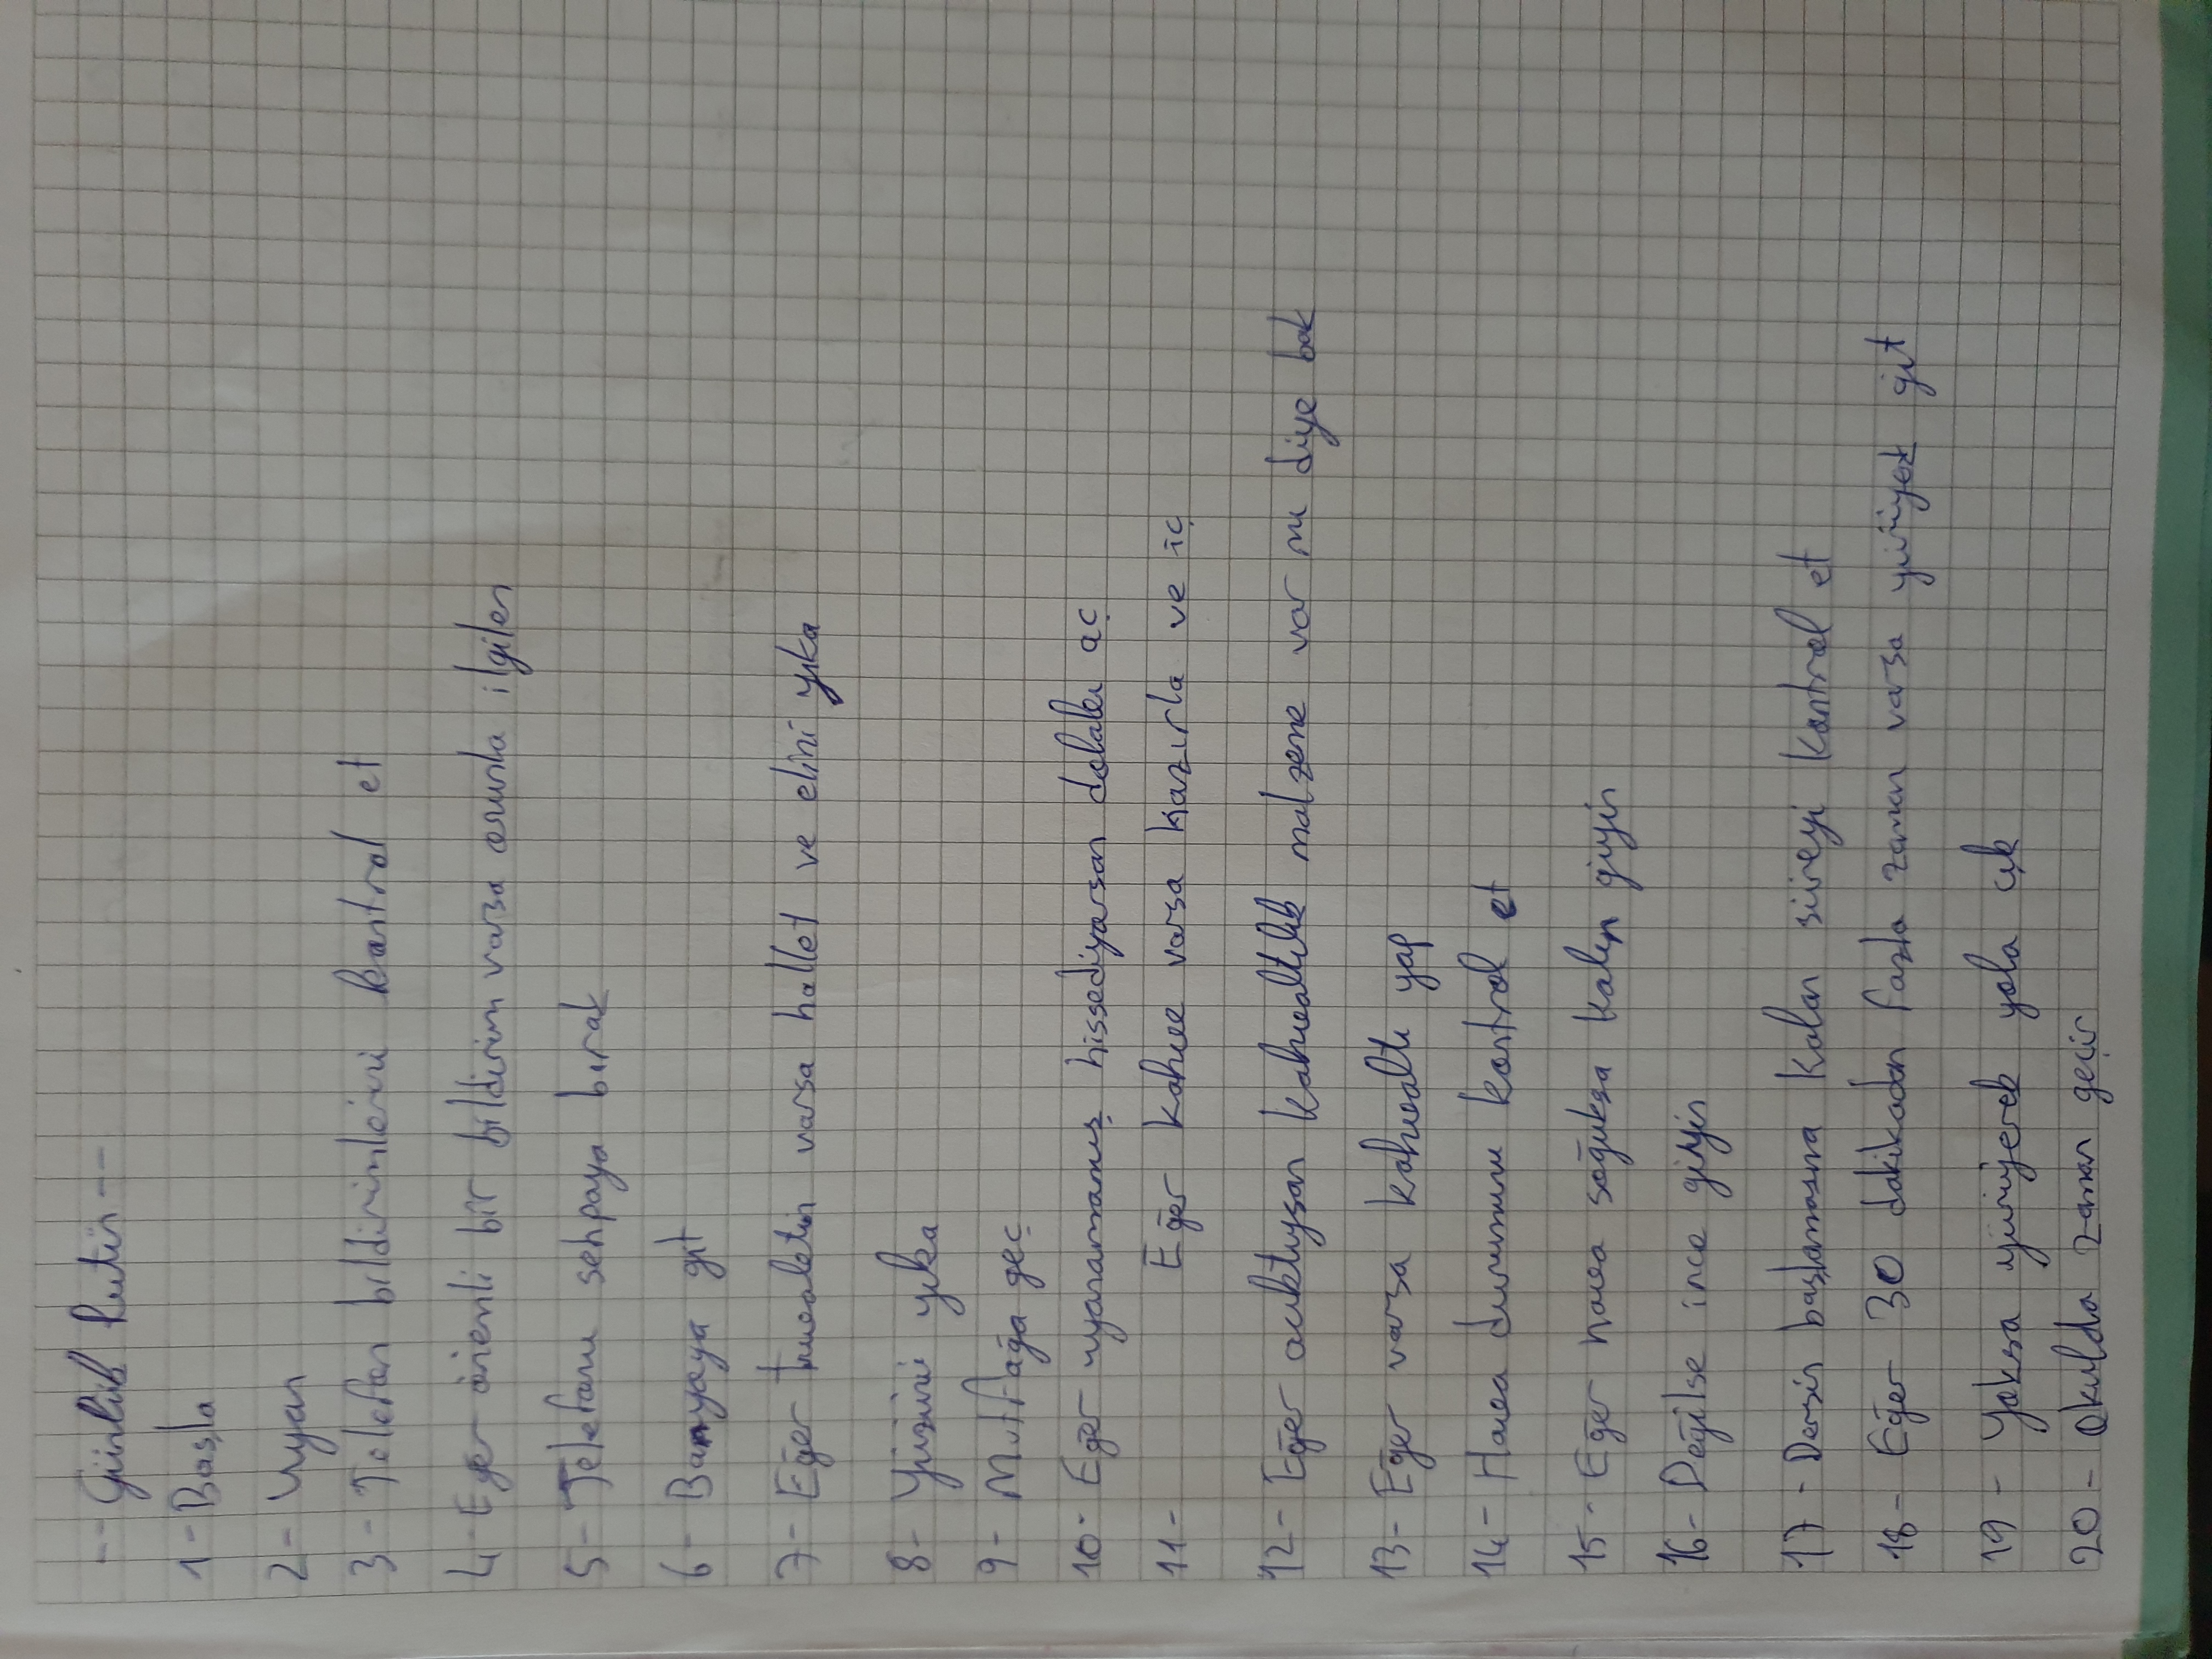 -- Günlük Rutin --
1- Başla
2- Uyan
3- Telefon bildirimlerini kontrol et
4- Eğer önemli bir bildirim varsa onunla ilgilen
5- Telefonu sehpaya bırak
6- Banyoya git
7- Eğer tuvaletin varsa hallet ve elini yıka
8- Yüzünü yıka
9- Mutfağa geç
10- Eğer uyanamamış hissediyorsan dolabı aç
11- Eğer kahve varsa hazırla ve iç
12- Eğer acıktıysan kahvaltılık malzeme var mı diye bak
13- Eğer varsa kahvaltı yap
14- Hava durumunu kontrol et
15- Eğer hava soğuksa kalın giyin
16- Değilse ince giyin
17- Dersin başlamasına kalan süreyi kontrol et
18- Eğer 30 dakikadan fazla zaman varsa git
19- Yoksa yürüyerek yola çık
20- Okulda zaman geçir